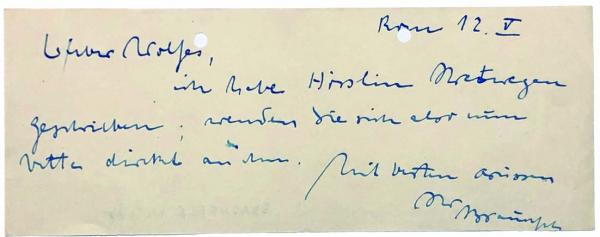 Rom 12. V
Lieber Wolfes,
ich habe Hösslin Ihretwegen
geschrieben; wenden Sie sich also nun
bitte direkt an ihn.
Mit besten Grüssen
Ihr